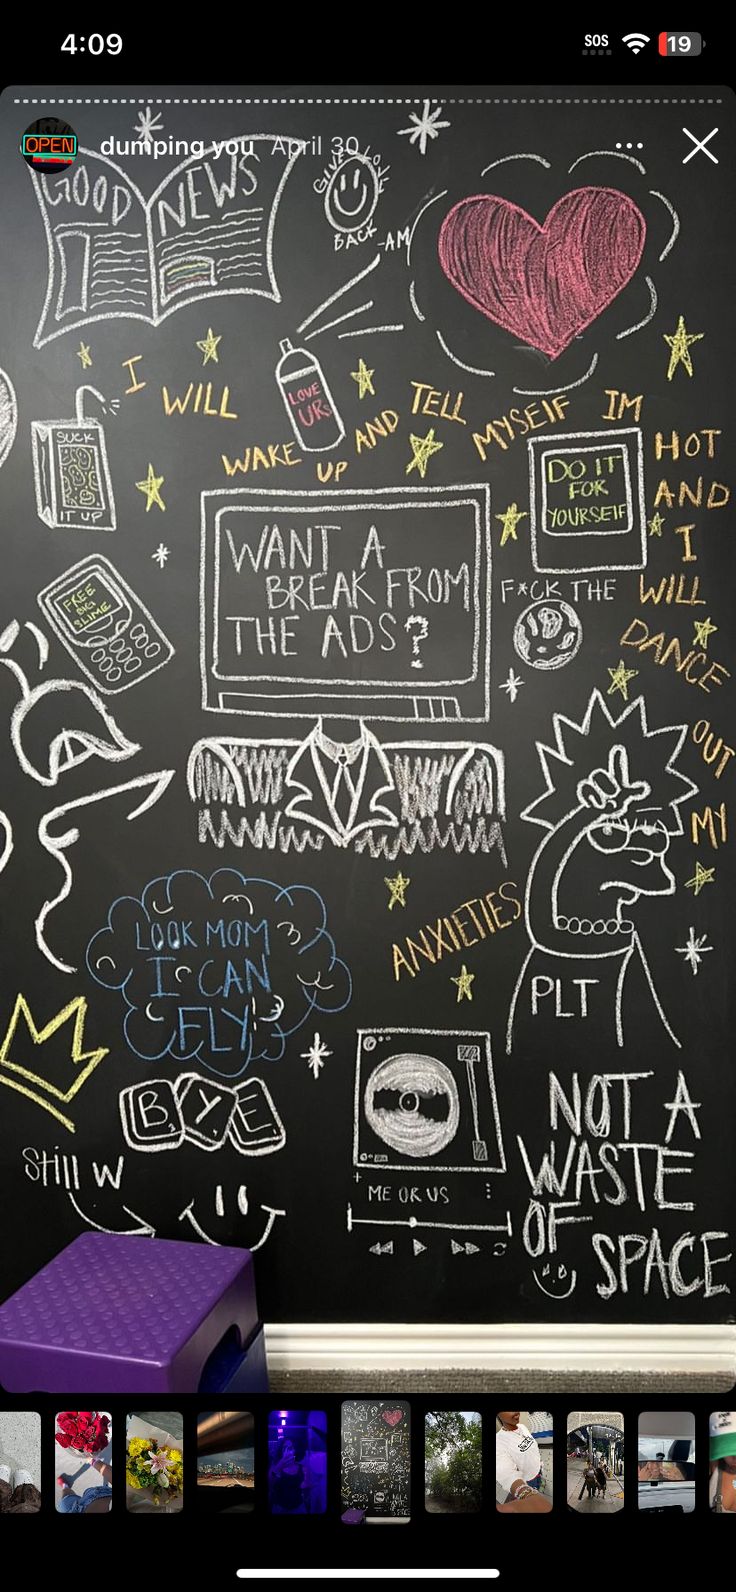 4:09
SOS
19
OPEN
dumping you April 30
GOOD
NEWS
GIVE LOVE
BACK
-AM
LOVE
URS
I
WILL
WAKE
UP
AND
TELL
MYSELF
IM
HOT
AND
I
WILL
DANCE
OUT
MY
ANXIETIES
SUCK
IT UP
DO IT
FOR
YOURSELF
WANT A
BREAK FROM
THE ADS?
F*CK THE
FREE
BIG
SLIME
LOOK MOM
I CAN
FLY!
PLT
BYE
Still W
ME OR US
NOT A
WASTE
OF
SPACE